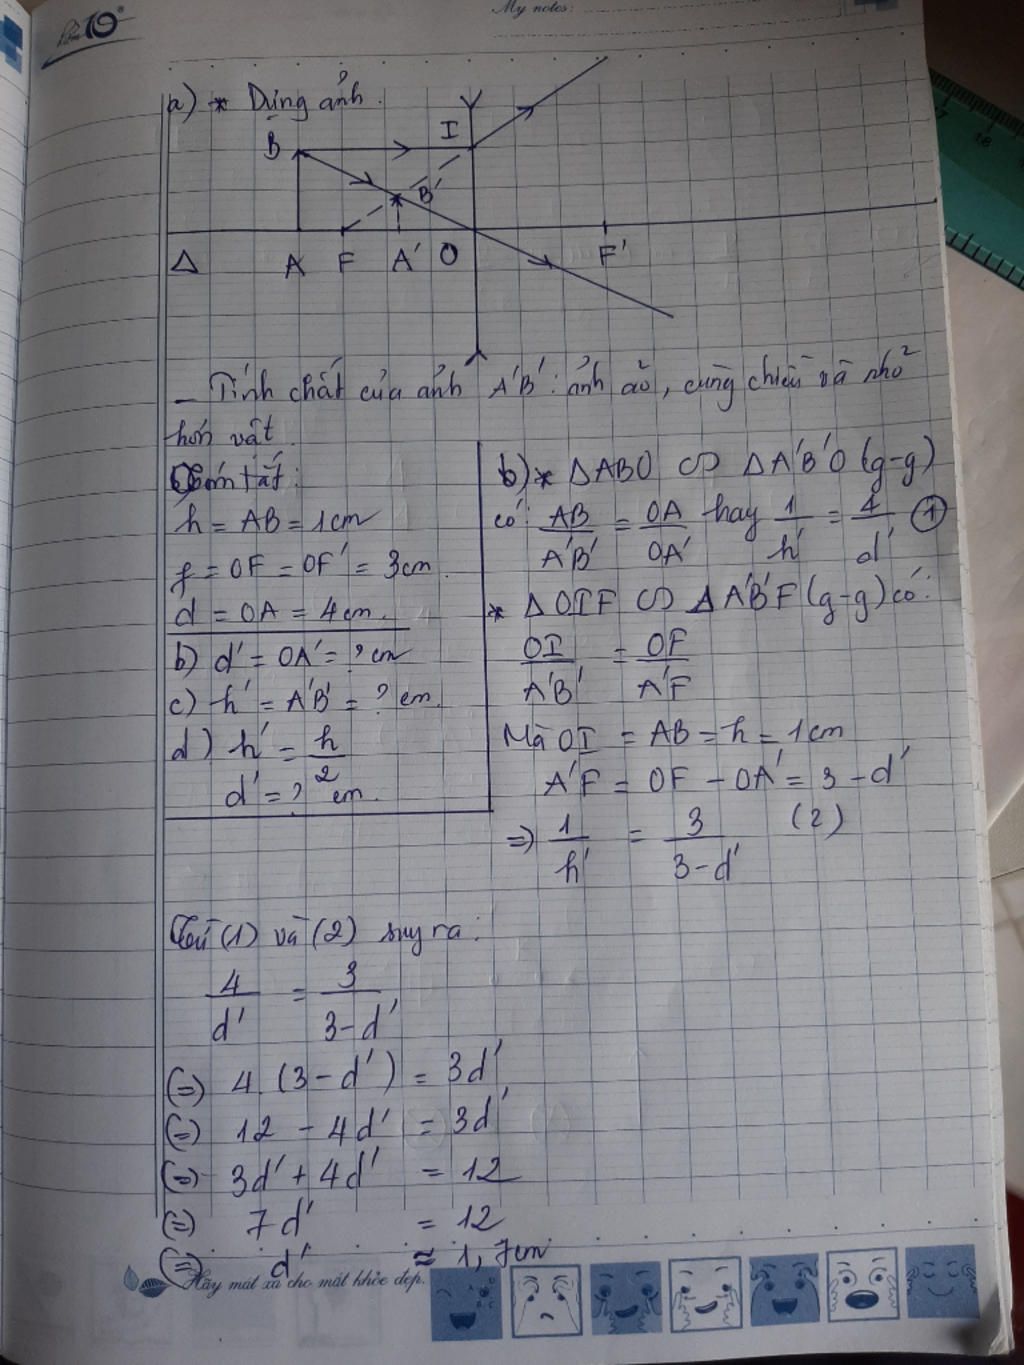 My notes:
10
a) * Dựng ảnh.
I
B
B'
Δ A F A' O F'
– Tính chất của ảnh A'B': ảnh ảo, cùng chiều và nhỏ
hơn vật.
Tóm tắt:
h = AB = 1cm
f = OF = OF' = 3cm.
d = OA = 4cm.
b) d' = OA' = ? cm
c) h' = A'B' = ? cm.
d) h' = h/2
d' = ? cm.
b) * ΔABO ∽ ΔA'B'O (g-g)
có: AB/A'B' = OA/OA' hay 1/h' = 4/d' (1)
* ΔOIF ∽ ΔA'B'F (g-g) có:
OI/A'B' = OF/A'F
Mà OI = AB = h = 1cm
A'F = OF - OA' = 3 - d'
⇒ 1/h' = 3/3-d' (2)
Từ (1) và (2) suy ra:
4/d' = 3/3-d'
(=) 4.(3-d') = 3d'
(=) 12 - 4d' = 3d'
(=) 3d' + 4d' = 12
(=) 7d' = 12
(=) d' ≈ 1,7cm
Hãy mát xa cho mắt khỏe đẹp.